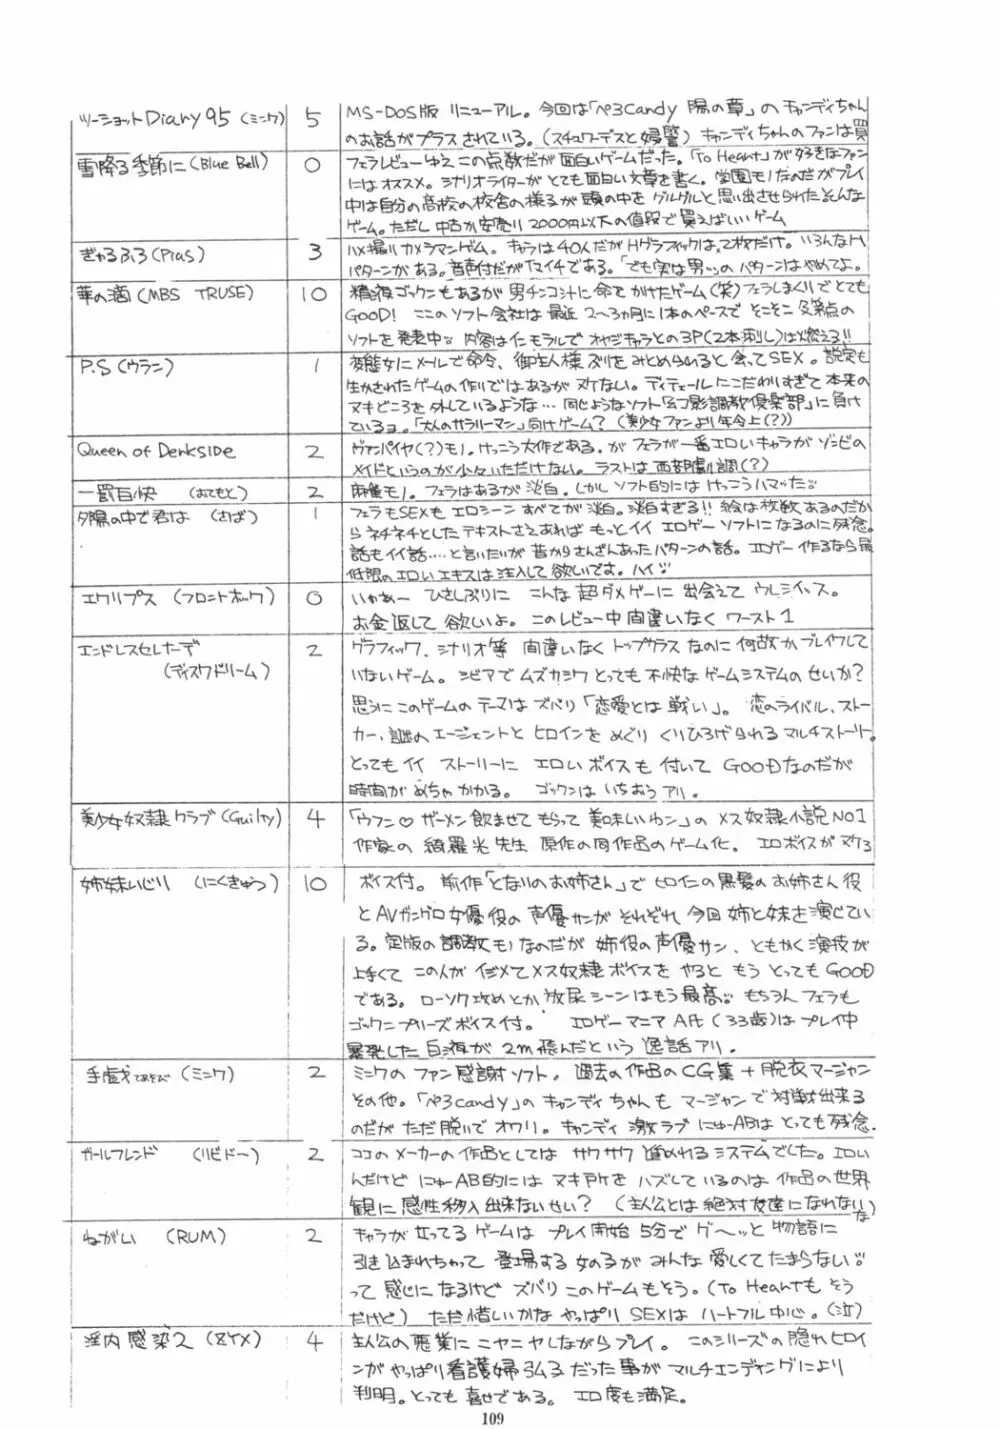 ツーショットDiary95(ミンク) 5 MS-DOS版 リニューアル。今回は「ぺろCandy 陽の章」のキャンディちゃん
のお話がプラスされている。(スチュワーデスと婦警) キャンディちゃんのファンは買
雪降る季節に(Blue Bell) 0 フェラレビューゆえこの点数だが面白いゲームだった。「To Heart」が好きなファン
にはオススメ。シナリオライターがとても面白い文章を書く。学園モノだがプレイ
中は自分の高校の校舎の様子が頭の中をグルグルと思い出させられたそんな
ゲーム。ただし中古か安売り2000円以下の値段で買えばいいゲーム
ぎゃるふろ(Pias) 3 ハメ撮りカメラマンゲーム。キャラは40人だがHグラフィックは、2枚だけ。いろんなH
パターンがある。音声付だがイマイチである。「でも実は男」のパターンはやめてよ。
華の滴(MBS TRUSE) 10 精液ゴックンもあるが男チンコ汁に命をかけたゲーム(笑)フェラしまくりでとても
GOOD! ここのソフト会社は最近2〜3ヵ月に1本のペースでそこそこ及第点の
ソフトを発表中。内容はイモラルでオヤジキャラとの3P(2本刺し)は燃える!!
P.S(ウラン) 1 変態女にメールで命令、御主人様ぶりをみとめられると会ってSEX。設定も
生かされたゲームの作りではあるがヌケない。ディテールにこだわりすぎて本来の
ヌキどころを外しているような… 同じようなソフト「幻影調教倶楽部」に負け
ているョ。「大人のサラリーマン」向けゲーム?(美少女ファンより年令上(?))
Queen of Denkside 2 ヴァンパイヤ(?)モノ。けっこう大作である。が フェラが一番エロいキャラがゾンビの
メイドというのが少々いただけない。ラストは西部劇調(?)
一罰百快 (おてもと) 2 麻雀モノ。フェラはあるが淡白。しかしソフト的にはけっこうハマった
夕陽の中で君は (さば) 1 フェラもSEXもエロシーンすべてが淡白。淡白すぎる!!絵は枚数あるのだか
らネチネチとしたテキストさえあればもっとイイ エロゲーソフトになるのに残念。
話もイイ話‥‥と言いたいが昔からさんざんあったパターンの話。エロゲー作るなら最
低限のエロいエキスは注入して欲しいです。ハイ
エクリプス (フロントホック) 0 いゃあー ひさしぶりに こんな超ダメゲーに出会えてウレシイッス。
お金返して欲しいよ。このレビュー中間違いなくワースト1
エンドレスセレナーデ 2 グラフィック、シナリオ等 間違いなくトップクラスなのに何故かブレイクして
(ディスクドリーム) いないゲーム。シビアでムズカシクとっても不快なゲームシステムのせいか?
思うにこのゲームのテーマはズバリ「恋愛とは戦い」。恋のライバル、ストー
カー、謎のエージェントとヒロインをめぐりくりひろげられるマルチストーリー。
とってもイイ ストーリーに エロいボイスも付いてGOODなのだが
時間がめちゃかかる。ゴックンはいちおうアリ。
美少女奴隷クラブ(Guilty) 4 「ウフン♡ ザーメン飲ませてもらって美味しいわン」のメス奴隷小説NO1
作家の綺羅光先生原作の同作品のゲーム化。エロボイスがヌケる
姉妹いじり (にくきゅう) 10 ボイス付。前作「となりのお姉さん」でヒロインの黒髪のお姉さん役
とAVガングロ女優役の声優サンがそれぞれ今回姉と妹を演じてい
る。定版の調教モノなのだが姉役の声優サン、ともかく演技が
上手くてこの人がイジメてメス奴隷ボイスをやるともうとってもGOOD
である。ローソク攻めとか放尿シーンはもう最高 もちろんフェラも
ゴックンプリーズボイス付。 エロゲーマニアA氏(33歳)はプレイ中
暴発した白液が2m飛んだという逸話アリ。
手戯てあそび(ミンク) 2 ミンクのファン感謝ソフト。過去の作品のCG集+脱衣マージャン
その他。「ぺろcandy」のキャンディちゃんもマージャンで対戦出来る
のだがただ脱いでオワリ。キャンディ激ラブにゅーABはとっても残念。
ガールフレンド (リビドー) 2 ココのメーカーの作品としてはサクサク進めれるシステムでした。エロい
んだけどにゅーAB的にはヌキドケをハズしているのは作品の世界
観に感性移入出来ないせい? (主人公とは絶対友達になれないな)
ねがい (RUM) 2 キャラが立ってるゲームはプレイ開始5分でグ〜ッと物語に
引き込まれちゃって登場する女のるがみんな愛しくてたまらない
って感じになるけどズバリこのゲームもそう。(To Heartもそう
だけど) ただ惜しいかなやっぱりSEXはハートフル中心。(泣)
淫内感染2(ZYX) 4 主人公の悪業にニヤニヤしながらプレイ。このシリーズの隠れヒロイ
ンがやっぱり看護婦弘るだった事がマルチエンディングにより
判明。とっても喜せである。エロ度も満足。
109